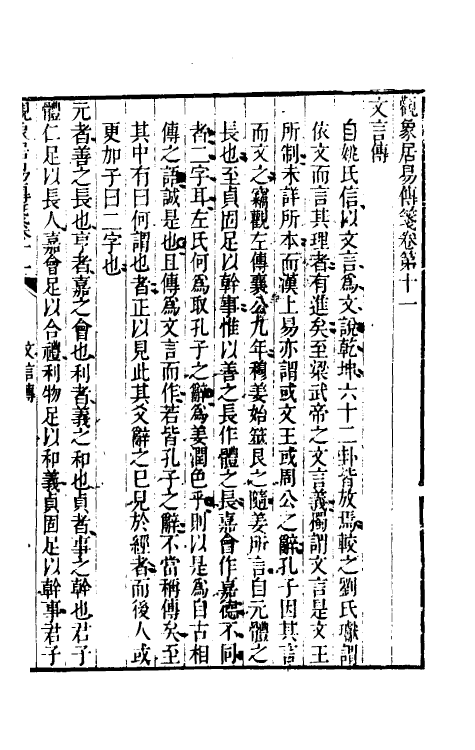 觀象居易傳箋卷第十一
文言傳
自姚氏信以文言爲文說乾坤六十二卦皆放焉較之劉氏瓛謂
依文而言其理者有進矣至梁武帝之文言義獨謂文言是文王
所制未詳所本而漢上易亦謂或文王或周公之辭孔子因其言
而文之竊觀左傳襄公九年穆姜始筮艮之隨姜所言自元體之
長也至貞固足以幹事惟以善之長作體之長嘉會作嘉德不同
者二字耳左氏何爲取孔子之辭爲姜潤色乎則以是爲自古相
傳之語誠是也且傳爲文言而作若皆孔子之辭不當稱傳矣至
其中有曰何謂也者正以見此其爻辭之已見於經者而後人或
更加子曰二字也
元者善之長也亨者嘉之會也利者義之和也貞者事之幹也君子
體仁足以長人嘉會足以合禮利物足以和義貞固足以幹事君子
觀象居易傳箋卷十一
文言傳